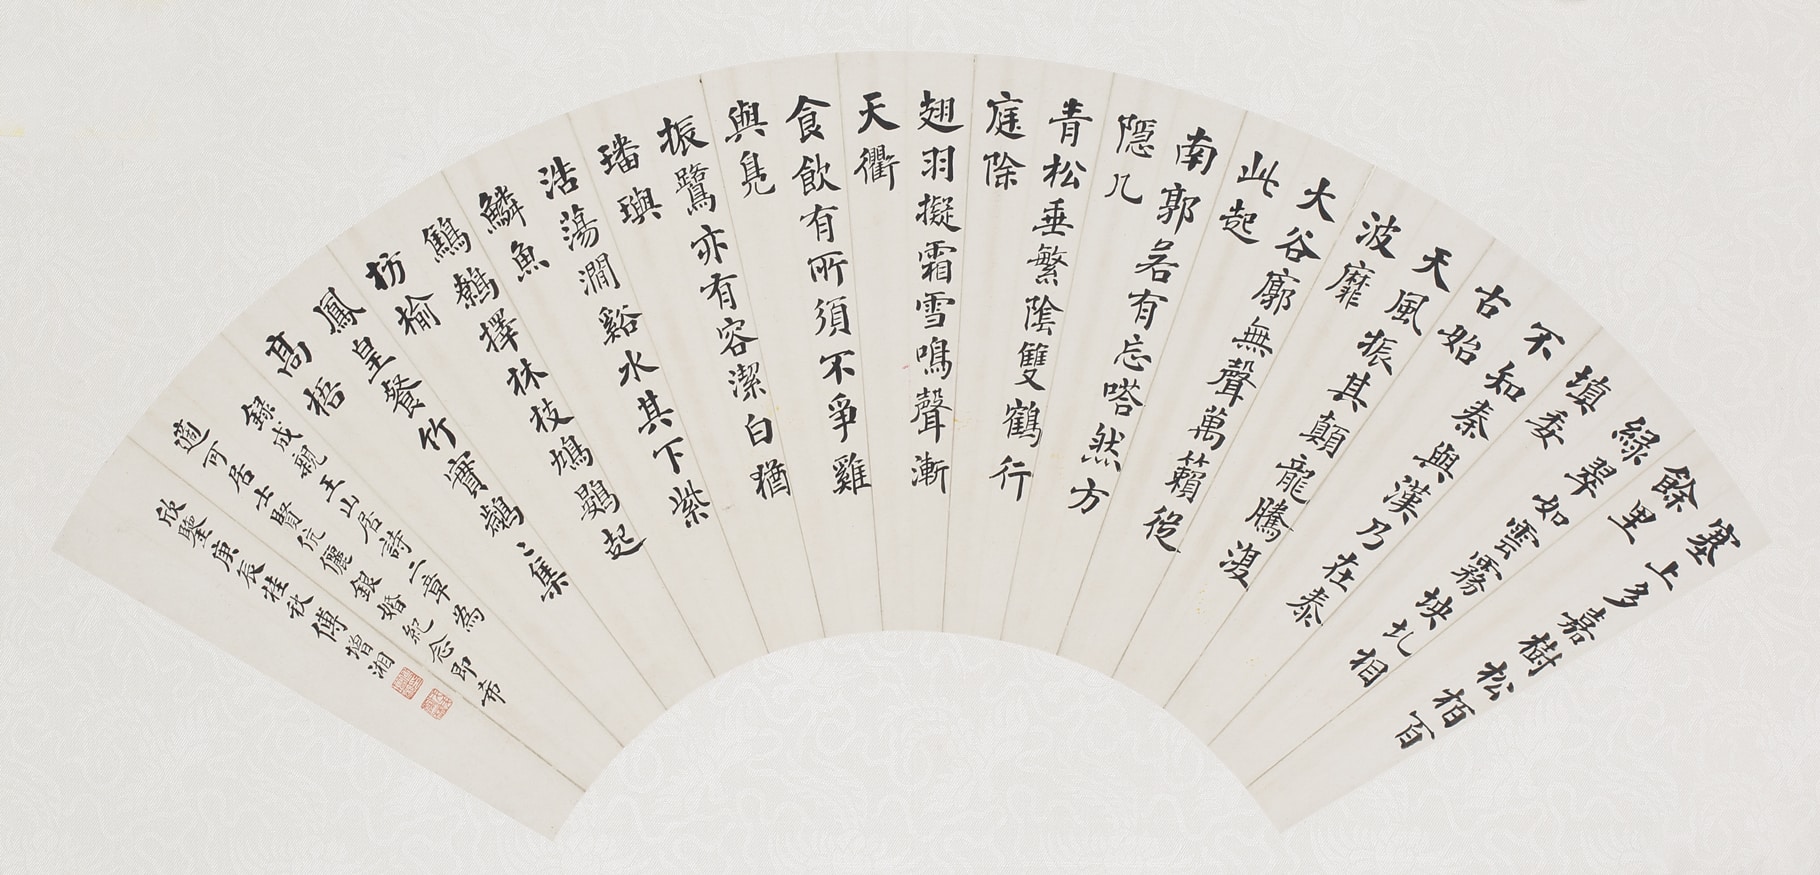 塞上多嘉樹松栢百
餘里
緑翠如雲霧坱圠相
填委
不知秦與漢乃在泰
古始
天風振其顛龍騰濅
波靡
大谷廓無聲萬籟從
此起
南郭若有忘嗒然方
隱几
青松垂繁陰雙鶴行
庭除
翅羽擬霜雪鳴聲漸
天衢
食飲有所須不爭雞
與鳧
振鷺亦有容潔白猶
璠璵
浩蕩澗谿水其下紫
鱗魚
鷦鷯擇林枝鳩鷃起
枋榆
鳳皇餐竹實鶼〻集
高梧
録成親王山居詩二章為
適可居士賢伉儷銀婚紀念即希
欣鑒庚辰桂秋傅增湘